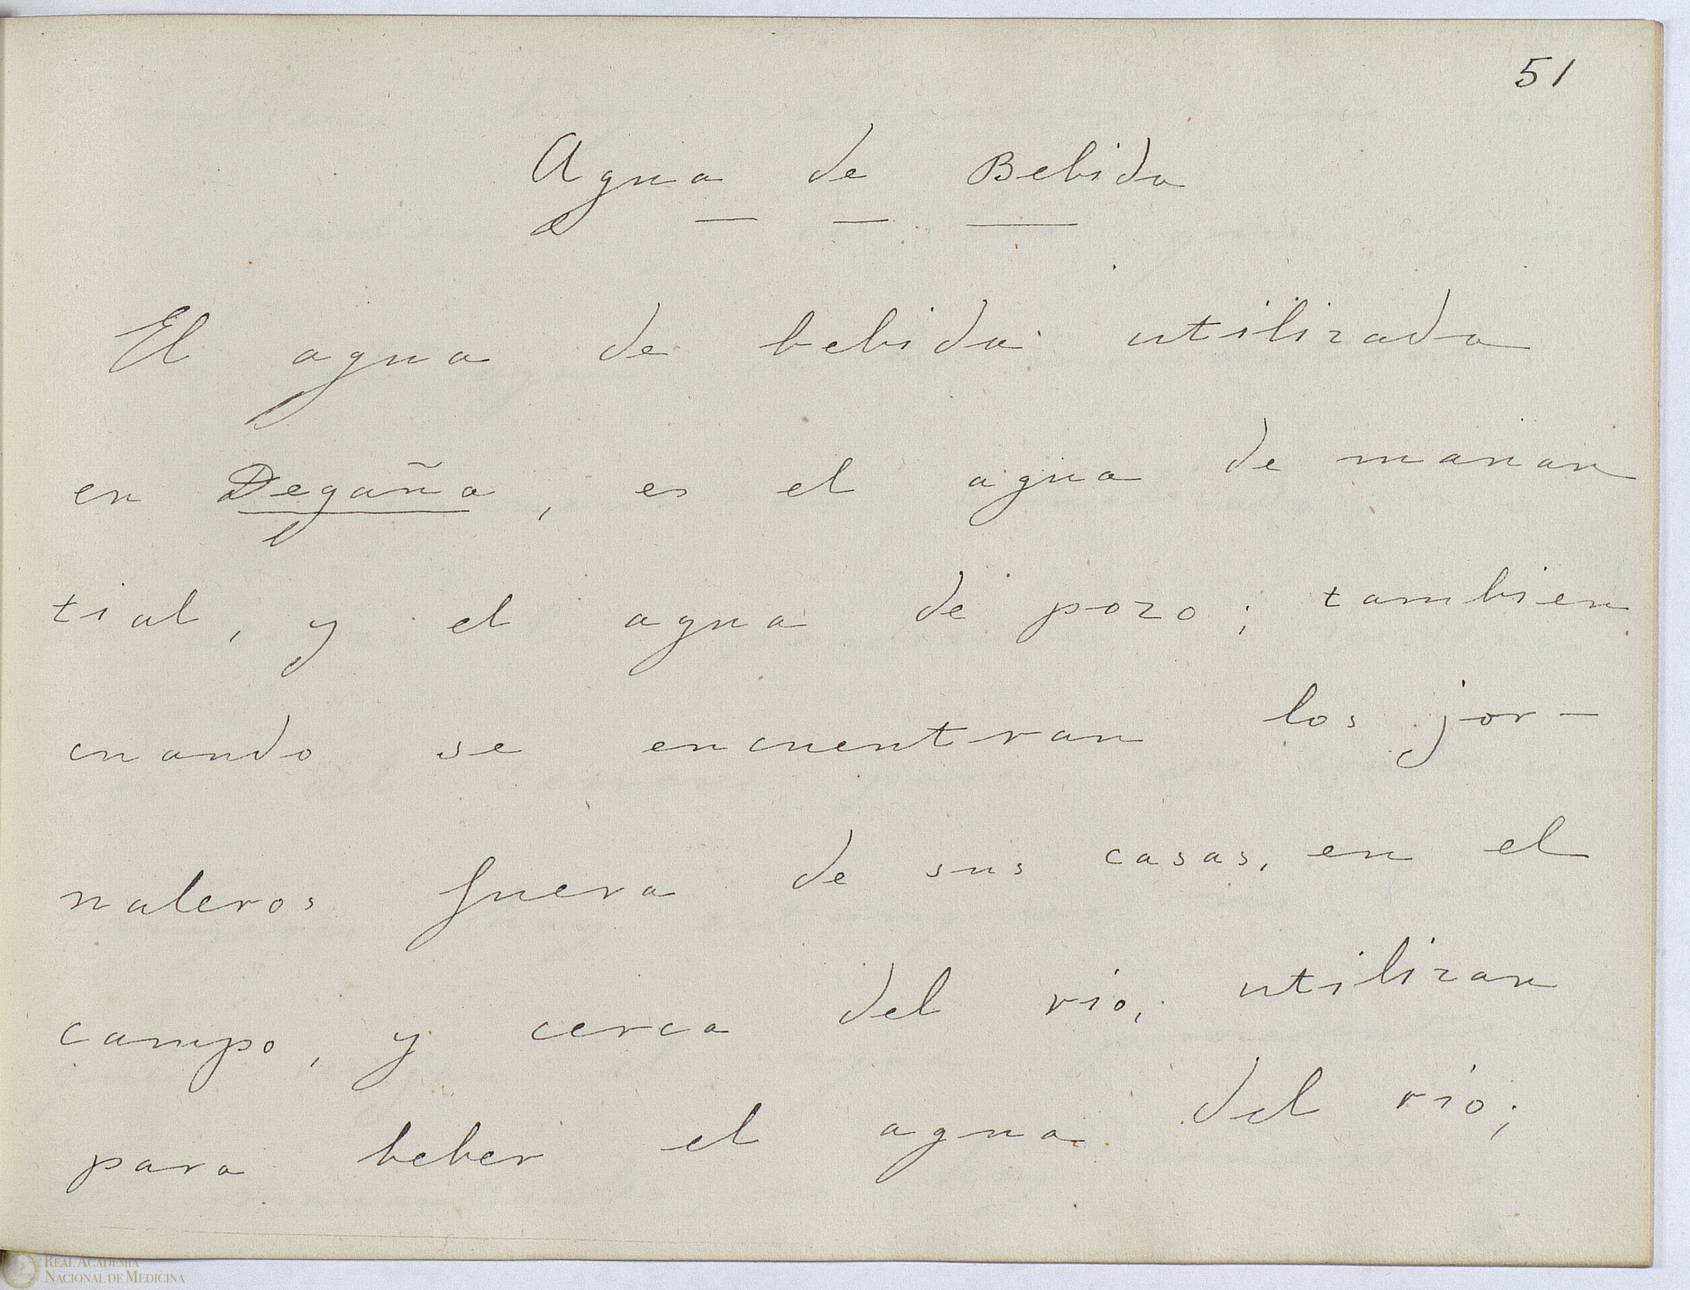 51
Agua de Bebida
El agua de bebida utilizada
en Degaña, es el agua de manan
tial, y el agua de pozo; tambien
cuando se encuentran los jor-
naleros fuera de sus casas, en el
campo, y cerca del rio, utilizan
para beber el agua del rio;
REAL ACADEMIA
NACIONAL DE MEDICINA